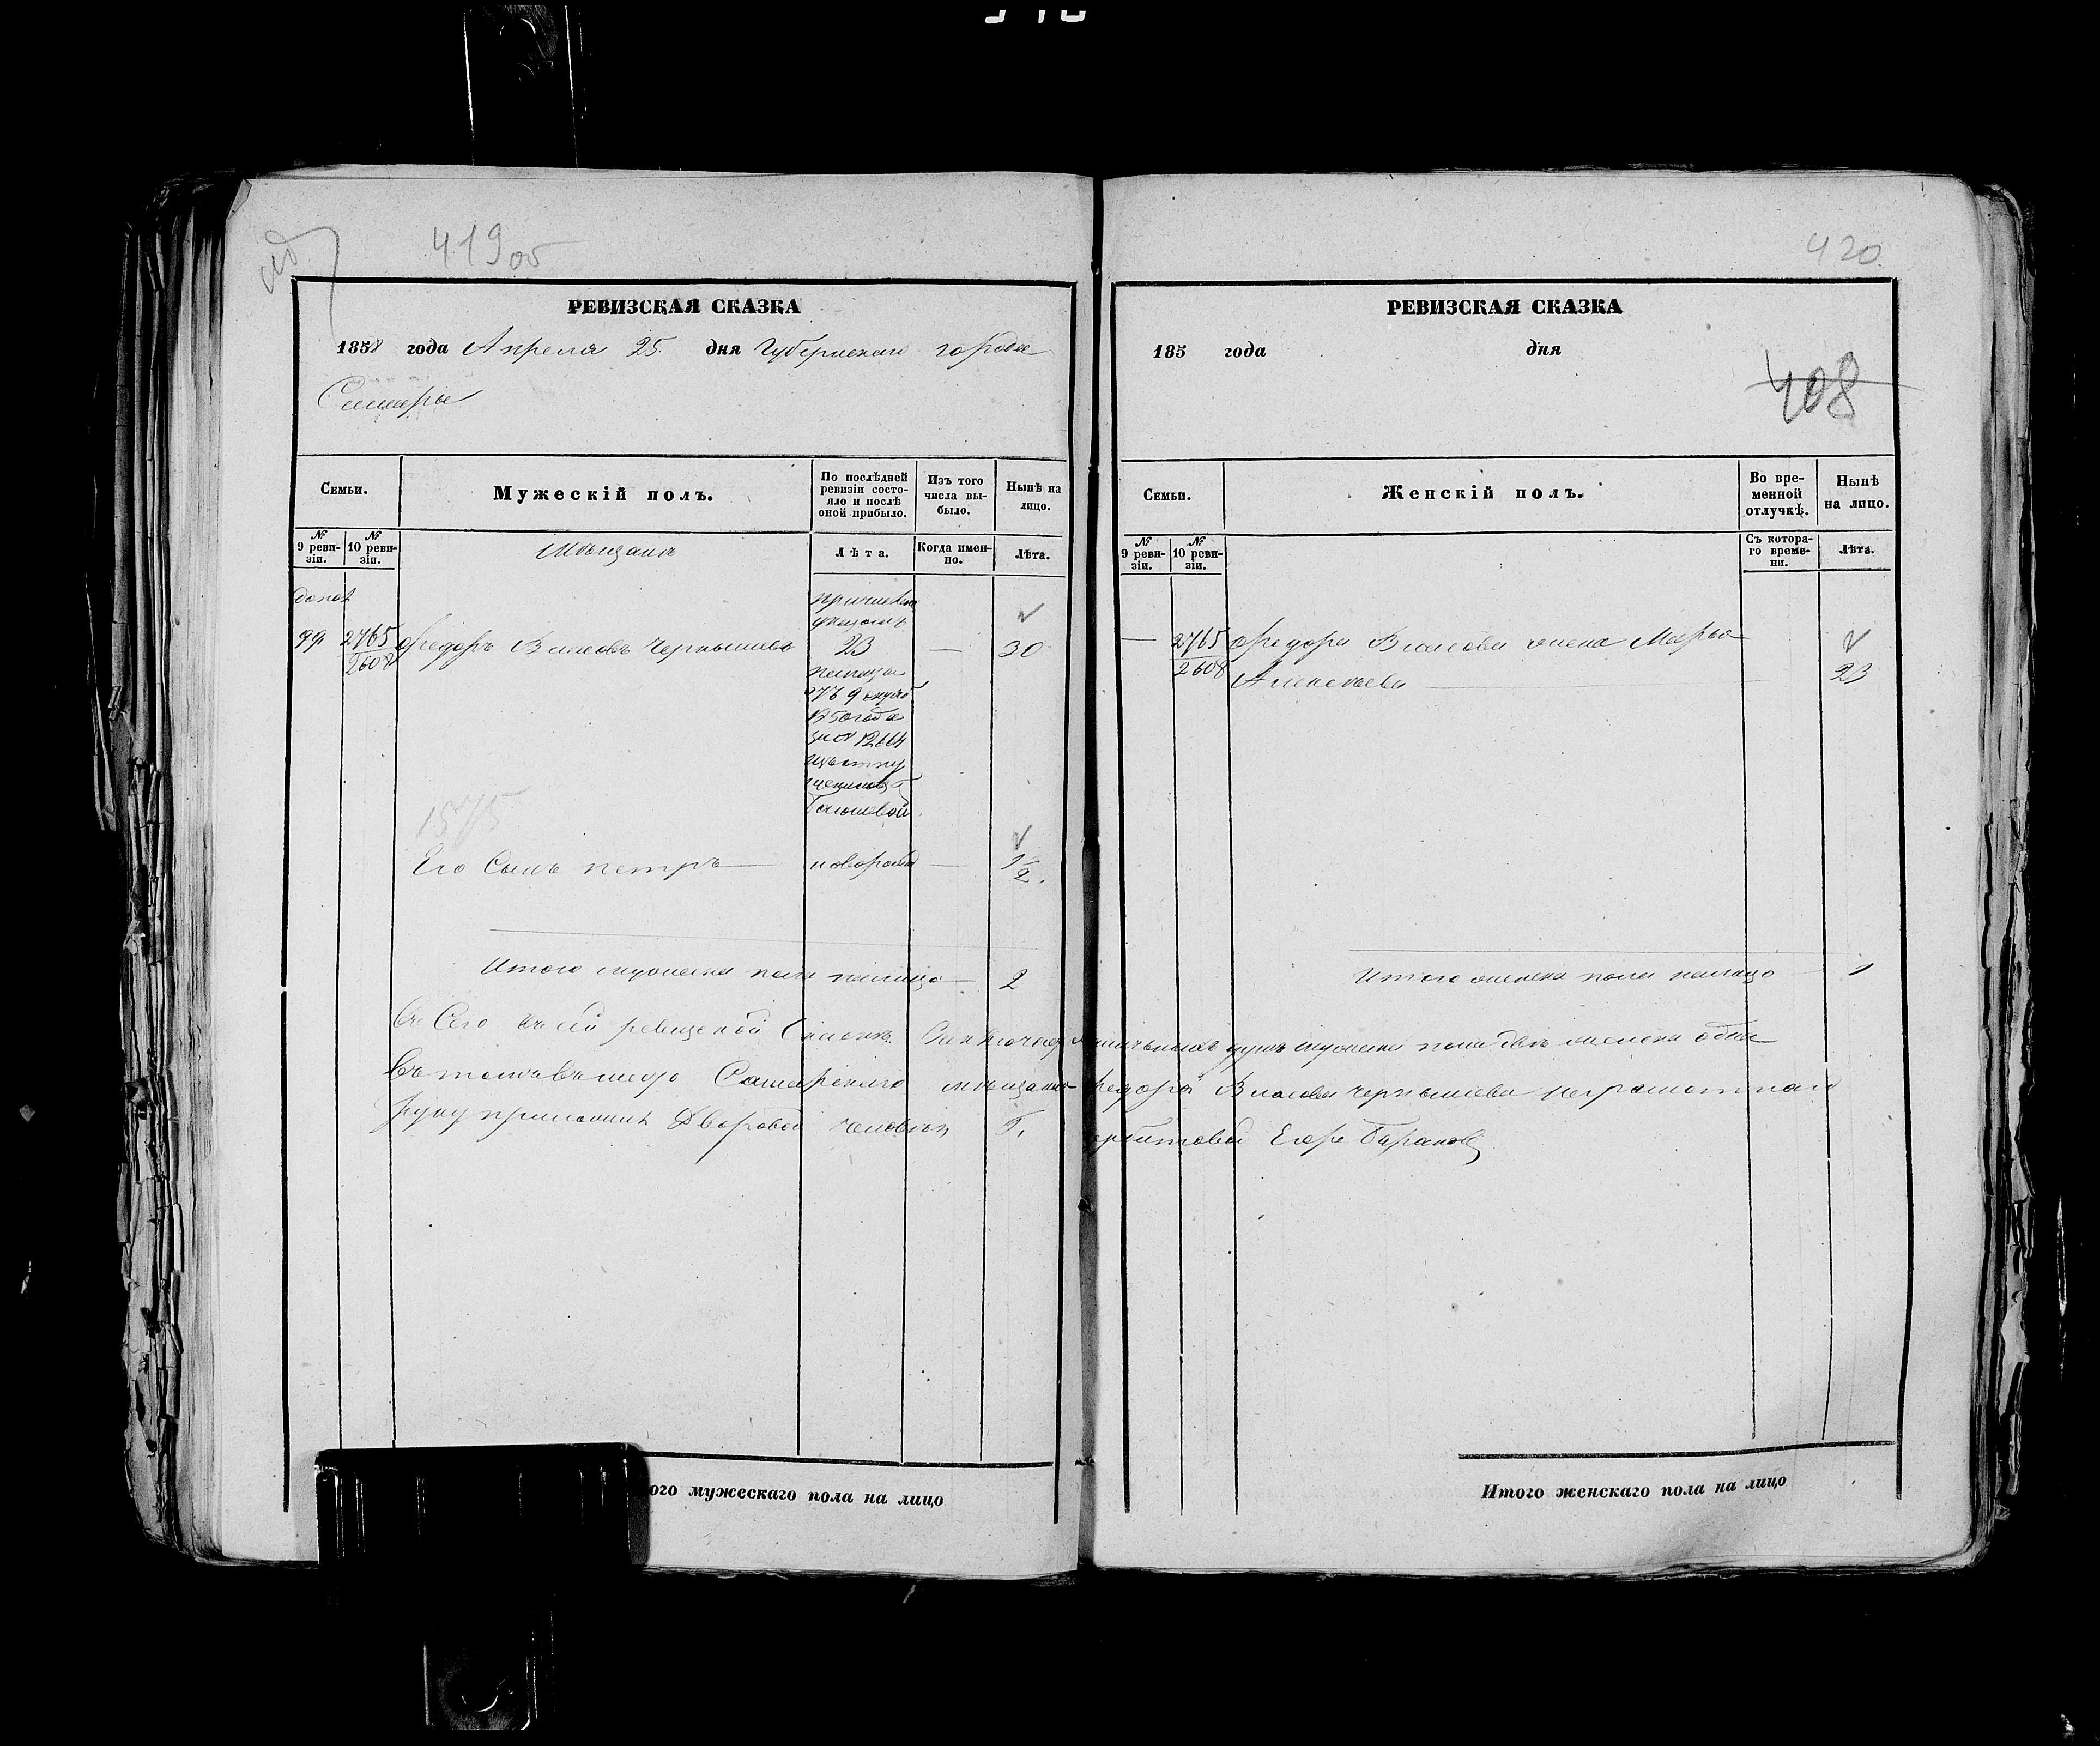 419 об
РЕВИЗСКАЯ СКАЗКА
1858 года Апреля 25 дня Губернскаго города
Самары
Семьи.
Мужескій полъ.
По послѣдней ревизіи состо-
яло и послѣ
оной прибыло.
Изъ того
числа вы-
было.
Нынѣ на
лицо.
№
9 реви-
зіи.
№
10 реви-
зіи.
Мѣщанъ
Лѣта.
Когда имен-
но.
Лѣта.
допол
99 2765 Федоръ Власовъ Чернышевъ 23 — 30
2608
палаты
отъ 9
1850 года
за № 12664
1575
Его Сынъ петръ — новорожд — 1/2
Итого мужеска пола налицо — 2
ого мужескаго пола на лицо
420
РЕВИЗСКАЯ СКАЗКА
185 года дня
408
Семьи.
Женскій полъ.
Во вре-
менной
отлучкѣ.
Нынѣ
на лицо.
№
9 реви-
зіи.
№
10 реви-
зіи.
Съ котора-
го време-
ни.
Лѣта.
— 2765 Федора Власова жена Марья
2608 Алексеева — 23
Итого женска пола налицо — 1
ревизской Скаске душъ мужеска пола двѣ женска одна
Въ томъ вместо Самарскаго мѣщанина Федора Власова Чернышева неграмотнаго
руку приложилъ Дворовой человѣкъ Г. Егоръ Барановъ
Итого женскаго пола на лицо